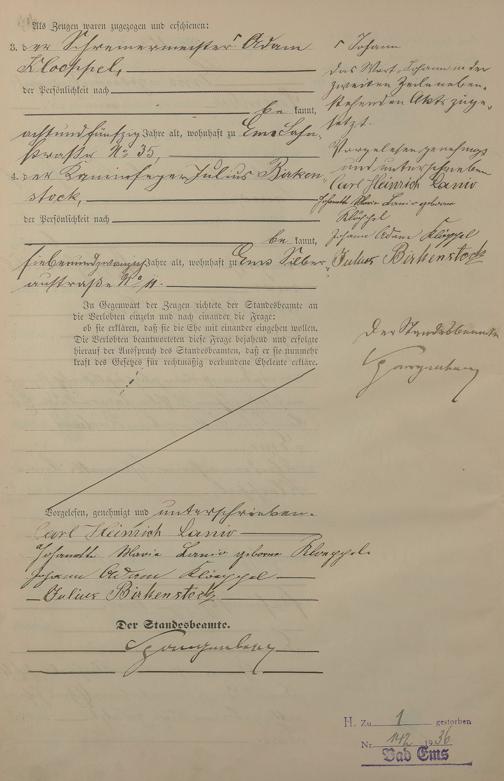 Als Zeugen waren zugezogen und erschienen:
3. der Schreinermeister ┌ Adam
Kloeppel,
der Persönlichkeit nach
be kannt,
achtundfünfzig Jahre alt, wohnhaft zu Ems Bahn
straße No 35,
4. der Kaminfeger Julius Birken
stock,
der Persönlichkeit nach
be kannt,
siebenundzwanzig Jahre alt, wohnhaft zu Ems Silber
austraße No
In Gegenwart der Zeugen richtete der Standesbeamte an
die Verlobten einzeln und nach einander die Frage:
ob sie erklären, daß sie die Ehe mit einander eingehen wollen.
Die Verlobten beantworteten diese Frage bejahend und erfolgte
hierauf der Ausspruch des Standesbeamten, daß er sie nunmehr
kraft des Gesetzes für rechtmäßig verbundene Eheleute erkläre.
Vorgelesen, genehmigt und unterschrieben.
Carl Heinrich Lanio
Johanette Maria Lanio geborne Kloeppel
Johann Adam Klöppel
Julius Birkenstock
Der Standesbeamte.
Spangenberg
┌ Johann
das Wort, Johann in der
zweiten Zeile neben-
stehenden Akts zuge-
setzt.
Vorgelesen genehmigt
und unterschrieben
Carl Heinrich Lanio
Johanette Maria Lanio geborne
Klöppel
Johann Adam Klöppel
Julius Birkenstock
Der Standesbeamte
Spangenberg
H. Zu 1 gestorben
Nr. 142 1936
Bad Ems